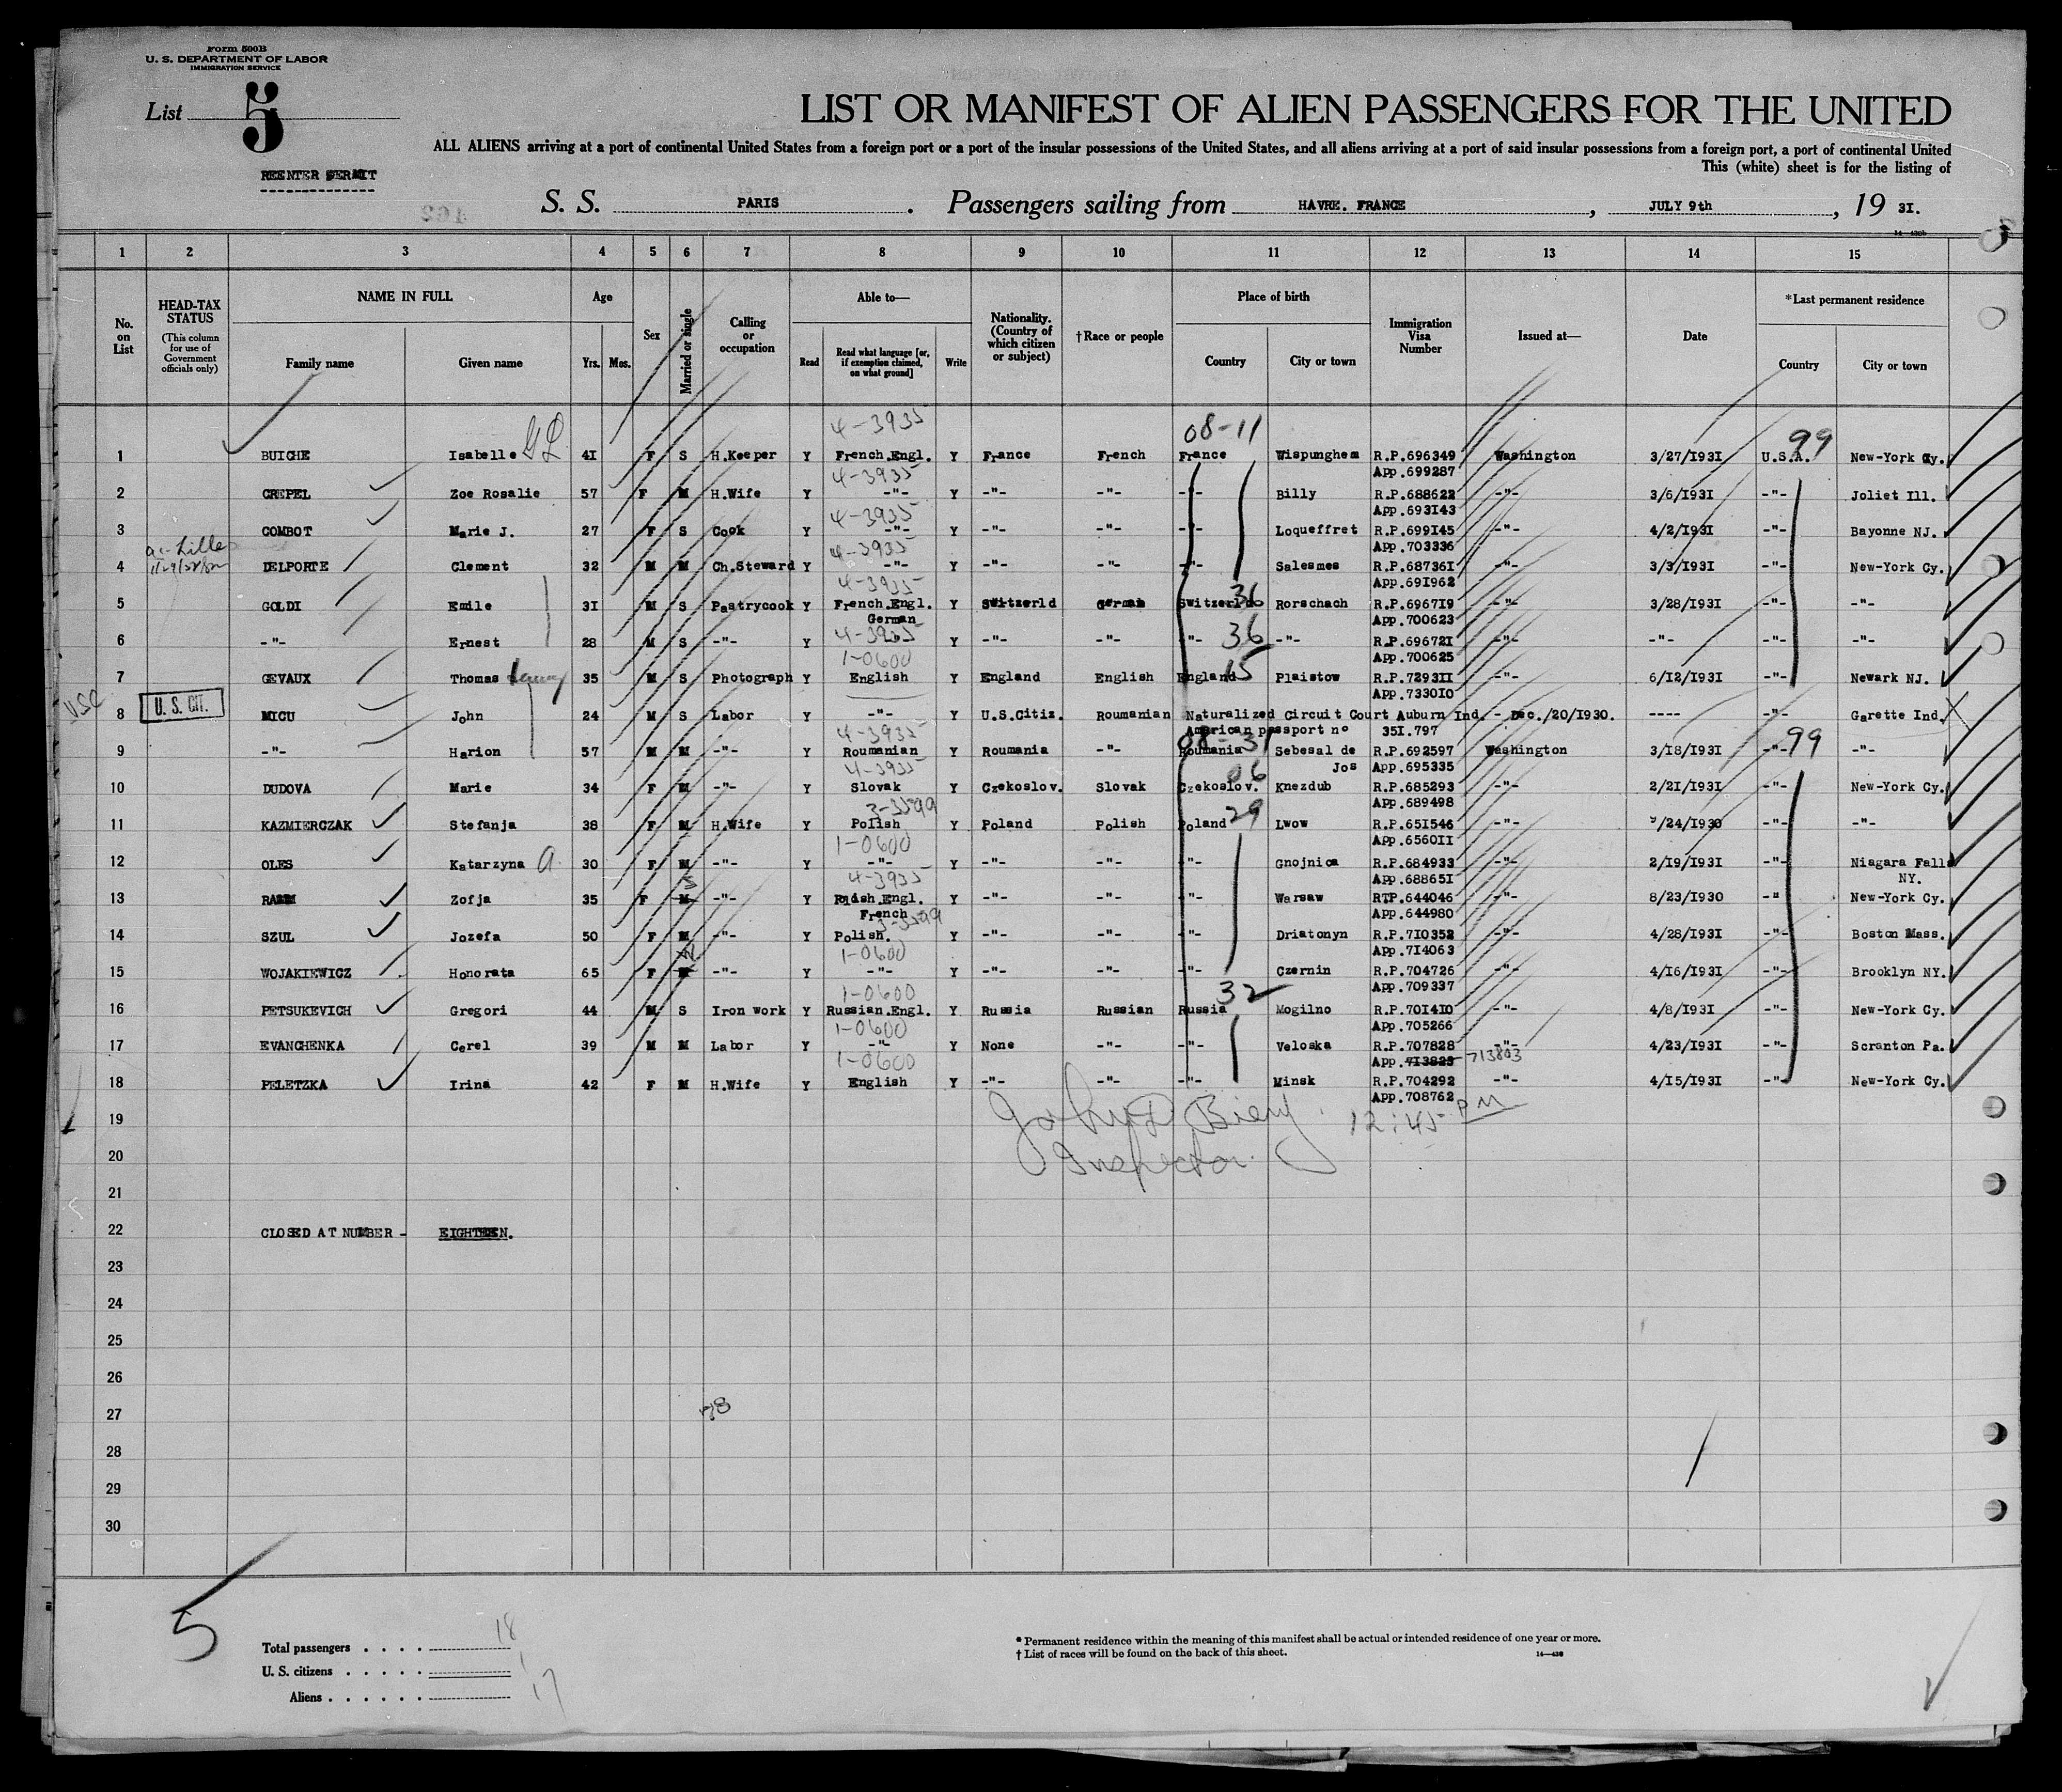 Form 500B
U. S. DEPARTMENT OF LABOR
IMMIGRATION SERVICE
List 5
REENTER PERMIT
LIST OR MANIFEST OF ALIEN PASSENGERS FOR THE UNITED
ALL ALIENS arriving at a port of continental United States from a foreign port or a port of the insular possessions of the United States, and all aliens arriving at a port of said insular possessions from a foreign port, a port of continental United
This (white) sheet is for the listing of
S. S. PARIS . Passengers sailing from HAVRE. FRANCE , JULY 9th , 19 31.
1 2 3 4 5 6 7 8 9 10 11 12 13 14 15
No. on List
HEAD-TAX STATUS (This column for use of Government officials only)
NAME IN FULL Family name Given name
Age Yrs. Mos.
Sex
Married or single
Calling or occupation
Able to— Read Read what language [or, if exemption claimed, on what ground] Write
Nationality. (Country of which citizen or subject)
† Race or people
Place of birth Country City or town
Immigration Visa Number
Issued at—
Date
*Last permanent residence Country City or town
4-3935 08-11 99
1 BUICHE Isabelle 41 F S H.Keeper Y French.Engl. Y France French France Wispunghem R.P.696349 Washington 3/27/1931 U.S.A. New-York Cy.
4-3935 App.699287
2 CREPEL Zoe Rosalie 57 F M H.Wife Y -"- Y -"- -"- -"- Billy R.P.688622 -"- 3/6/1931 -"- Joliet Ill.
4-3935 App.693143
3 COMBOT Marie J. 27 F S Cook Y -"- Y -"- -"- -"- Loqueffret R.P.699145 -"- 4/2/1931 -"- Bayonne NJ.
4-3935 App.703336
4 DELPORTE Clement 32 M M Ch.Steward Y -"- Y -"- -"- -"- Salesmes R.P.687361 -"- 3/3/1931 -"- New-York Cy.
4-3935 App.691962
5 GOLDI Emile 31 M S Pastrycook Y French.Engl. Y Switzerld German Switzerld 36 Rorschach R.P.696719 -"- 3/28/1931 -"- -"-
German App.700623
4-3935
6 -"- Ernest 28 M S -"- Y Y -"- -"- -"- 36 -"- R.P.696721 -"- -"- -"- -"-
1-0600 App.700625
7 GEVAUX Thomas 35 M S Photograph Y English Y England English England 15 Plaistow R.P.729311 -"- 6/12/1931 -"- Newark NJ.
App.733010
USC U. S. CIT.
8 MICU John 24 M S Labor Y -"- Y U.S.Citiz. Roumanian Naturalized Circuit Court Auburn Ind. - Dec./20/1930. ---- -"- Garette Ind.
4-3935 American passport no 351.797
08-31 99
9 -"- Harion 57 M M -"- Y Roumanian Y Roumania -"- Roumania Sebesal de R.P.692597 Washington 3/18/1931 -"- -"-
4-3935 Jos App.695335
10 DUDOVA Marie 34 F M -"- Y Slovak Y Czekoslov. Slovak Czekoslov. 06 Knezdub R.P.685293 -"- 2/21/1931 -"- New-York Cy.
3-3599 App.689498
11 KAZMIERCZAK Stefanja 38 F M H.Wife Y Polish Y Poland Polish Poland 29 Lwow R.P.651546 -"- /24/1930 -"- -"-
1-0600 App.656011
12 OLES Katarzyna 30 F M -"- Y -"- Y -"- -"- -"- Gnojnica R.P.684933 -"- 2/19/1931 -"- Niagara Falls
4-3935 App.688651 NY.
13 Zofja 35 F M S -"- Y Polish.Engl. Y -"- -"- -"- Warsaw RTP.644046 -"- 8/23/1930 -" New-York Cy.
French App.644980
3-3599
14 SZUL Jozefa 50 F M -"- Y Polish. Y -"- -"- -"- Driatonyn R.P.710352 -"- 4/28/1931 -"- Boston Mass.
1-0600 App.714063
15 WOJAKIEWICZ Honorata 65 F -"- Y -"- Y -"- -"- -"- Czernin R.P.704726 -"- 4/16/1931 -"- Brooklyn NY.
1-0600 32 App.709337
16 PETSUKEVICH Gregori 44 M S Iron work Y Russian.Engl. Y Russia Russian Russia Mogilno R.P.701410 -"- 4/8/1931 -"- New-York Cy.
1-0600 App.705266
17 EVANCHENKA Cerel 39 M M Labor Y -"- Y None -"- -"- Veloska R.P.707828 -"- 4/23/1931 -"- Scranton Pa.
1-0600 App.713823 713803
18 PELETZKA Irina 42 F M H.Wife Y English Y -"- -"- -"- Minsk R.P.704292 -"- 4/15/1931 -"- New-York Cy.
App.708762
19 12:45 PM
20 Inspector
21
22 CLOSED AT NUMBER - EIGHTEEN.
23
24
25
26
27
28
29
30
5
Total passengers . . . . 18
U. S. citizens . . . . . 1
Aliens . . . . . . 17
* Permanent residence within the meaning of this manifest shall be actual or intended residence of one year or more.
† List of races will be found on the back of this sheet.